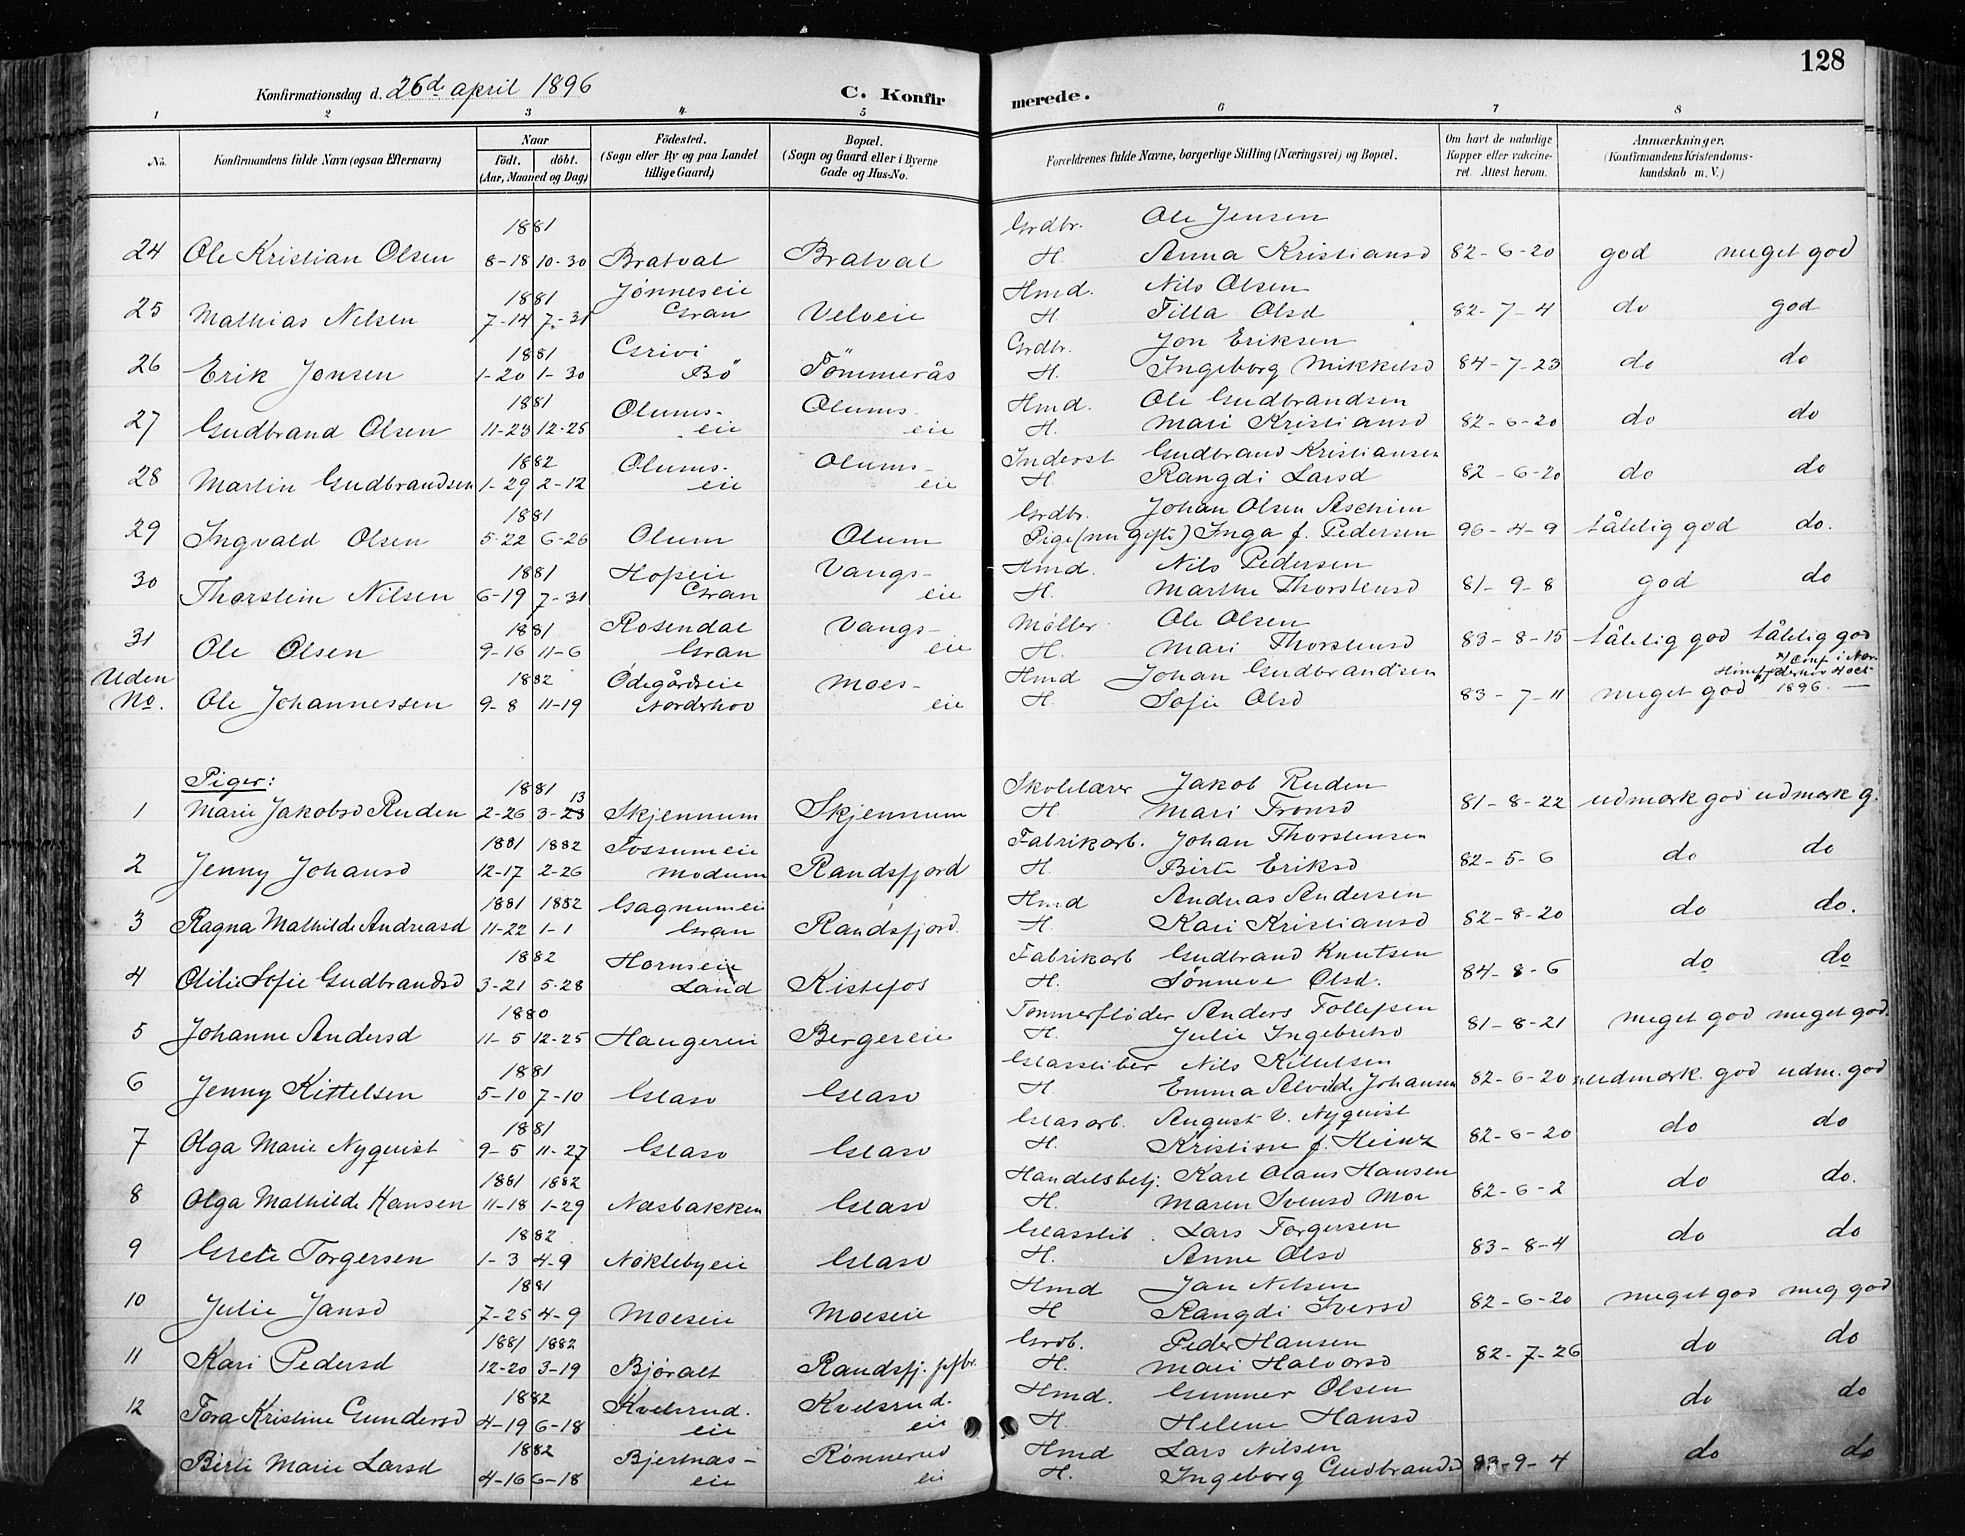 128
Konfirmationsdag d. 26d april 1896 C. Konfirmerede.
1 2 3 4 5 6 7 8
No. Konfirmandens fulde Navn (ogsaa Efternavn) Naar født. døbt. (Aar, Maaned og Dag) Fødested. (Sogn eller By og paa Landet tillige Gaard) Bopæl. (Sogn og Gaard eller i Byerne Gade og Hus-No. Forældrenes fulde Navne, borgerlige Stilling (Næringsvei) og Bopæl. Om havt de naturlige Kopper eller vakcineret. Attest herom. Anmærkninger. (Konfirmandens Kristendomskundskab m. V.)
1881 Grdbr. Ole Jensen
24 Ole Kristian Olsen 8-18 10-30 Bratval Bratval H. Anna Kristiansd 82-6-20 god meget god
1881 Jønneseie Hmd. Nils Olsen
25 Mathias Nilsen 7-14 7-31 Gran Velveie H. Tilla Olsd 82-7-4 do god
1881 Grivi Grdbr. Jon Eriksen
26 Erik Jonsen 1-20 1-30 Bö Tömmerås H. Ingeborg Mikkelsd 84-7-23 do do
1881 Olums- Olums- Hmd. Ole Gudbrandsen
27 Gudbrand Olsen 11-23 12-25 eie eie H. Mari Kristiansd 82-6-20 do do
1882 Olums- Olums- Inderst Gudbrand Kristiansen
28 Martin Gudbrandsen 1-29 2-12 eie eie H. Rangdi Larsd 82-6-20 do do
1881 Grdbr. Johan Olsen Aschim
29 Ingvald Olsen 5-22 6-26 Olum Olum Pige (nu gift) Inga f. Pedersen 96-4-9 tålelig god do.
1881 Hopeie Vangs- Hmd. Nils Pedersen
30 Thorstein Nilsen 6-19 7-31 Gran eie H. Marthe Thorstensd 81-9-8 god do
1881 Rosendal Vangs- Møller Ole Olsen
31 Ole Olsen 9-16 11-6 Gran eie H. Mari Thorstensd 83-8-15 tålelig god tålelig god
Uden 1882 Ödegårdseie Moes- Hmd Johan Gudbrandsen
No. Ole Johannessen 9-8 11-19 Norderhov eie H. Sofie Olsd 83-7-11 meget god 1896.
Piger:
1881 13 Skolelærer Jakob Ruden
1 Marie Jakobsd Ruden 2-26 3-23 Skjennum Skjennum H. Mari Tronsd 81-8-22 udmærk god udmærk g.
1881 1882 Fossumeie Fabrikarb. Johan Thorstensen
2 Jenny Johansd 12-17 2-26 Modum Randsfjord H. Birte Eriksd 82-5-6 do do
1881 1882 Gagnumeie Hmd Andreas Andersen
3 Ragna Mathilde Andreasd 11-22 1-1 Gran Randsfjord. H. Kari Kristiansd 82-8-20 do do.
1882 Hornseie Fabrikarb Gudbrand Knutsen
4 Otilie Sofie Gudbrandsd 3-21 5-28 Land Kistefos H. Sønneve Olsd. 84-8-6 do do
1880 Tømmerfløder Anders Tollefsen
5 Johanne Andersd 11-5 12-25 Haugereie Bergereie H. Julie Ingebretsd 81-8-21 meget god meget god.
1881 Glassliber Nils Kittelsen
6 Jenny Kittelsen 5-10 7-10 Glasv Glasv H. Emma Alvilde Johansen 82-6-20 udmærk. god udm. god
1881 Glasarb. August V. Nyquist
7 Olga Marie Nyquist 9-5 11-27 Glasv Glasv H. Kristine f. Heinz 82-6-20 do do
1881 1882 Handelsbetj. Karl Olaus Hansen
8 Olga Mathilde Hansen 11-18 1-29 Næsbakken Glasv H. Maren Svensd Moe 82-6-2 do do.
1882 Glasslib. Lars Torgersen
9 Grete Torgersen 1-3 4-9 Nøklebyeie Glasv H. Anne Olsd 83-8-4 do do
1881 Hmd Jan Nilsen
10 Julie Jansd 7-25 4-9 Moeseie Moeseie H Rangdi Iversd 82-6-20 meget god meg god
1881 1882 Grdb. Peder Hansen
11 Kari Pedersd 12-20 3-19 Bjøralt Randsfj. H. Mari Halvorsd 82-7-26 do do
1882 Kvelsrud- Kvelsrud- Hmd. Gunner Olsen
12 Tora Kristine Gundersd 4-19 6-18 eie eie H. Helene Hansd do do
1882 Bjertnæs- Rønnerud Hmd Lars Nilsen
Birte Marie Larsd 4-16 6-18 eie ei H. Ingeborg Gudbrandsd 83-9-4 do do